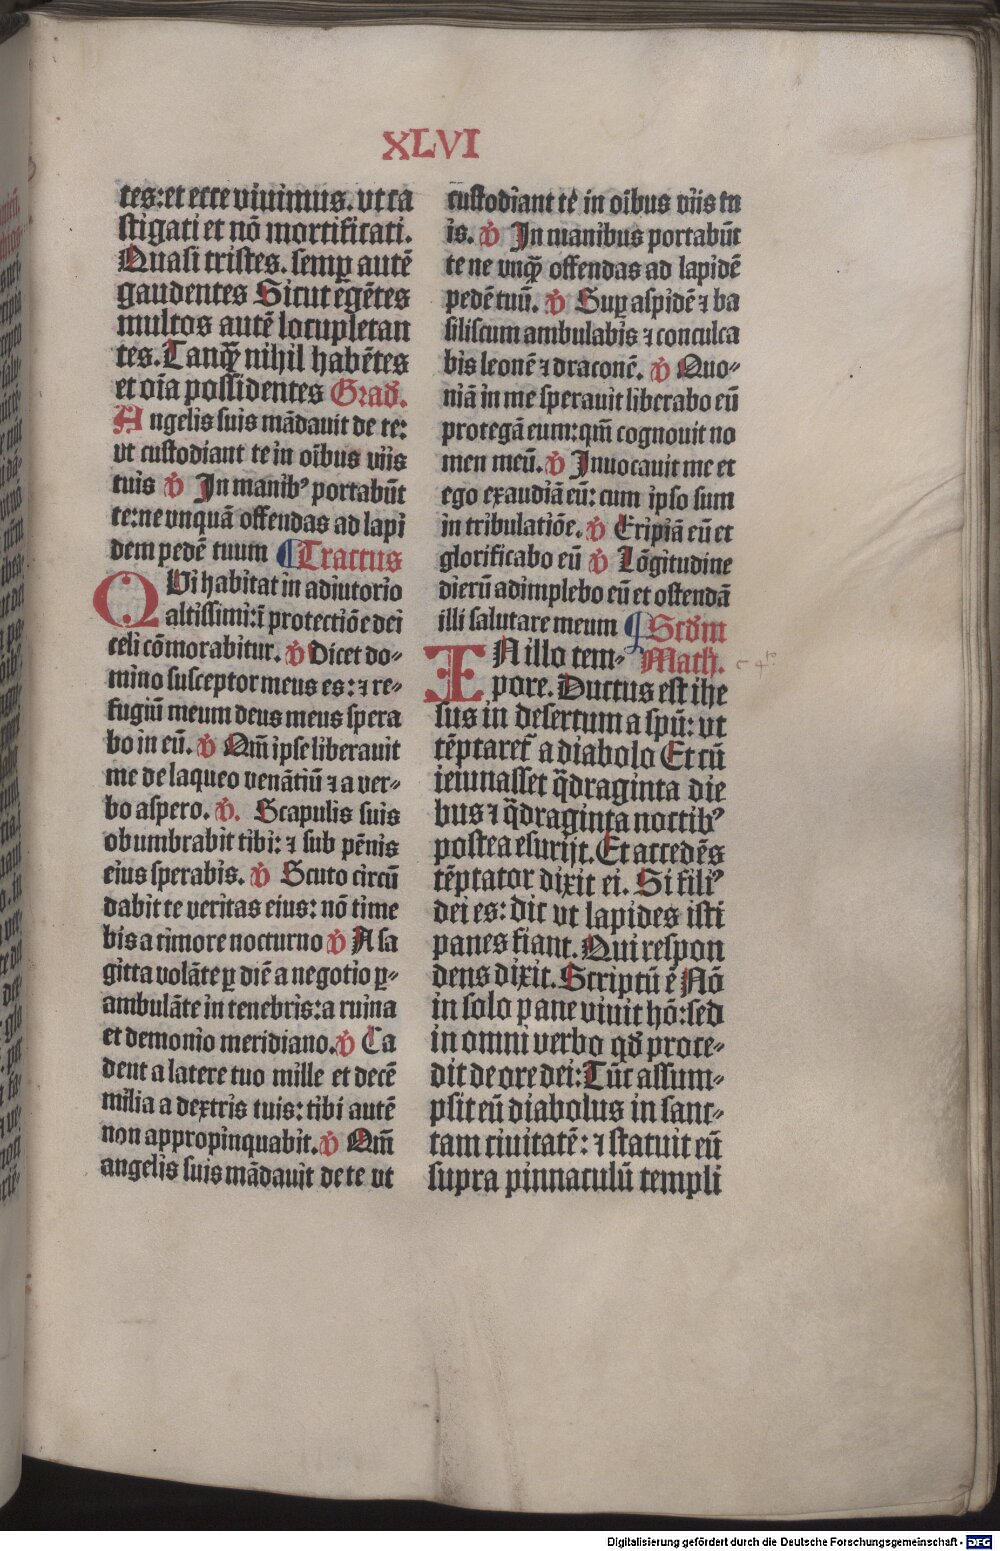 XLVI
tes: et ecce viuimus. vt ca
stigati et nō mortificati.
Quasi tristes. semꝑ autē
gaudentes Sicut egētes
multos autē locupletan
tes. Tanqꝫ nihil habētes
et oīa possidentes Grad̕.
Angelis suis mādauit de te:
vt custodiant te in oībus viis
tuis ℣ In manib⁹ portabūt
te: ne vnquā offendas ad lapi
dem pedē tuum ¶ Tractus
QVi habitat in adiutorio
altissimi: ī protectiōe dei
celi cōmorabitur. ℣ Dicet do⸗
mino susceptor meus es: ⁊ re⸗
fugiū meum deus meus spera
bo in eū. ℣ Qm̄ ipse liberauit
me de laqueo venātiū ⁊ a ver⸗
bo aspero. ℣. Scapulis suis
obumbrabit tibi: ⁊ sub pēnis
eius sperabis. ℣ Scuto circū
dabit te veritas eius: nō time
bis a timore nocturno ℣ A sa
gitta volāte ꝑ diē a negotio ꝑ⸗
ambulāte in tenebris: a ruina
et demonio meridiano. ℣ Ca
dent a latere tuo mille et decē
milia a dextris tuis: tibi autē
non appropinquabit. ℣ Qm̄
angelis suis mādauit de te vt
custodiant te in oībus viis tu
is. ℣ In manibus portabūt
te ne vnqꝫ offendas ad lapidē
pedē tuū. ℣ Suꝑ aspidē ⁊ ba
siliscum ambulabis ⁊ conculca
bis leonē ⁊ draconē. ℣ Quo⸗
niā in me sperauit liberabo eū
protegā eum: qm̄ cognouit no
men meū. ℣ Inuocauit me et
ego exaudiā eū: cum ipso sum
in tribulatiōe. ℣ Eripiā eū et
glorificabo eū ℣ Lōgitudine
dierū adimplebo eū et ostendā
illi salutare meum ¶ Scd̕m
IN illo tem⸗ Math.
pore. Ductus est ihe
sus in desertum a spū: vt
tēptaret̕ a diabolo Et cū
ieiunasset q̄draginta die
bus ⁊ q̄draginta noctib⁹
postea esurijt. Et accedēs
tēptator dixit ei. Si fili⁹
dei es: dic vt lapides isti
panes fiant. Qui respon
dens dixit. Scriptū ē Nō
in solo pane viuit hō: sed
in omni verbo qd̕ proce⸗
dit de ore dei: Tūc assum⸗
psit eū diabolus in sanc⸗
tam ciuitatē: ⁊ statuit eū
supra pinnaculū templi
Digitalisierung gefördert durch die Deutsche Forschungsgemeinschaft - DFG